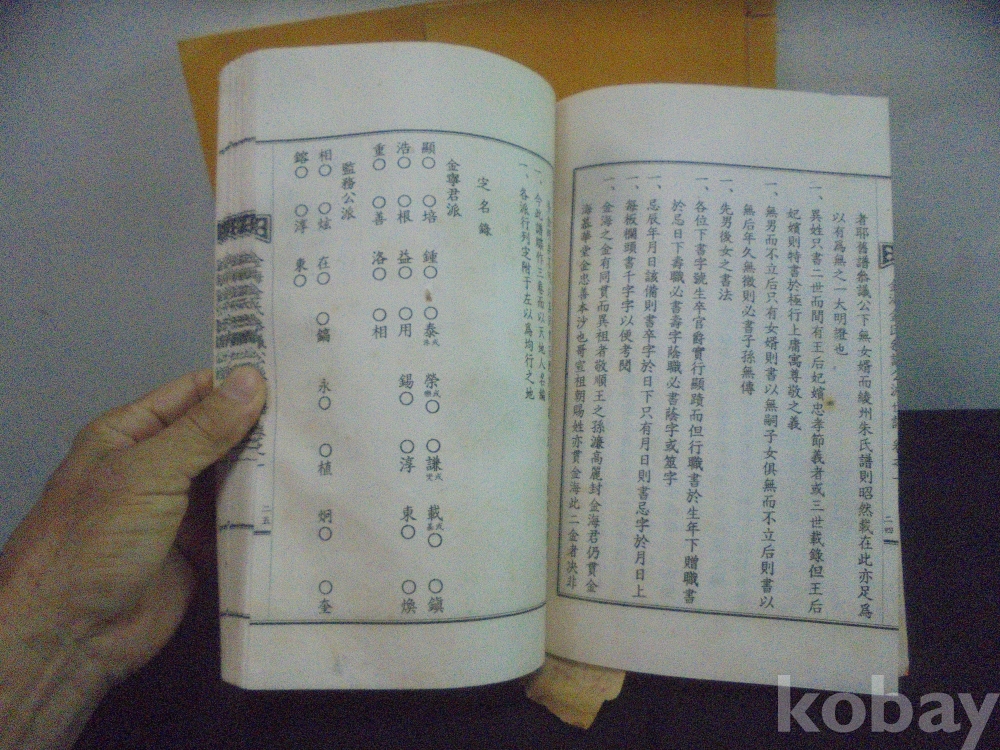 者耶舊譜參議公下無女婿而綾州朱氏譜則昭然載在此亦足為
以有為無之一大明證也
一、異姓只書二世而間有王后妃嬪忠孝節義者或三世載錄但王后
妃嬪則特書於極行上庸寓尊敬之義
一、無男而不立后只有女婿則書以無嗣子女俱無而不立后則書以
無后年久無徵則必書子孫無傳
一、先男後女之書法
一、各位下書字號生卒官爵實行顯蹟而但行職書於生年下贈職書
於忌日下壽職必書壽字陰職必書陰字或筮字
一、忌辰年月日該備則書卒字於日下只有月日則書忌字於月日上
一、每板欄頭書千字字以便考閱
一、金海之金有同貫而異祖者敬順王之孫濂高麗封金海君仍貫金
海慕華堂金忠善本沙也哥宣祖朝賜姓亦貫金海此二金者決非
二四
一、今此譜牒作三卷而以天地人名編
一、各派行列定附于左以為均行之地
定名錄
金寧君派
顯○ ○培 鍾○ ○泰 榮○ ○謙 載○ ○鎭
浩○ ○根 益○ ○用 錫○ ○淳 東○ ○煥
重○ ○善 洛○ ○相
監務公派
相○ ○炫 在○ ○鎬 永○ ○植 炯○ ○奎
鎔○ ○淳 東○
二五
kobay